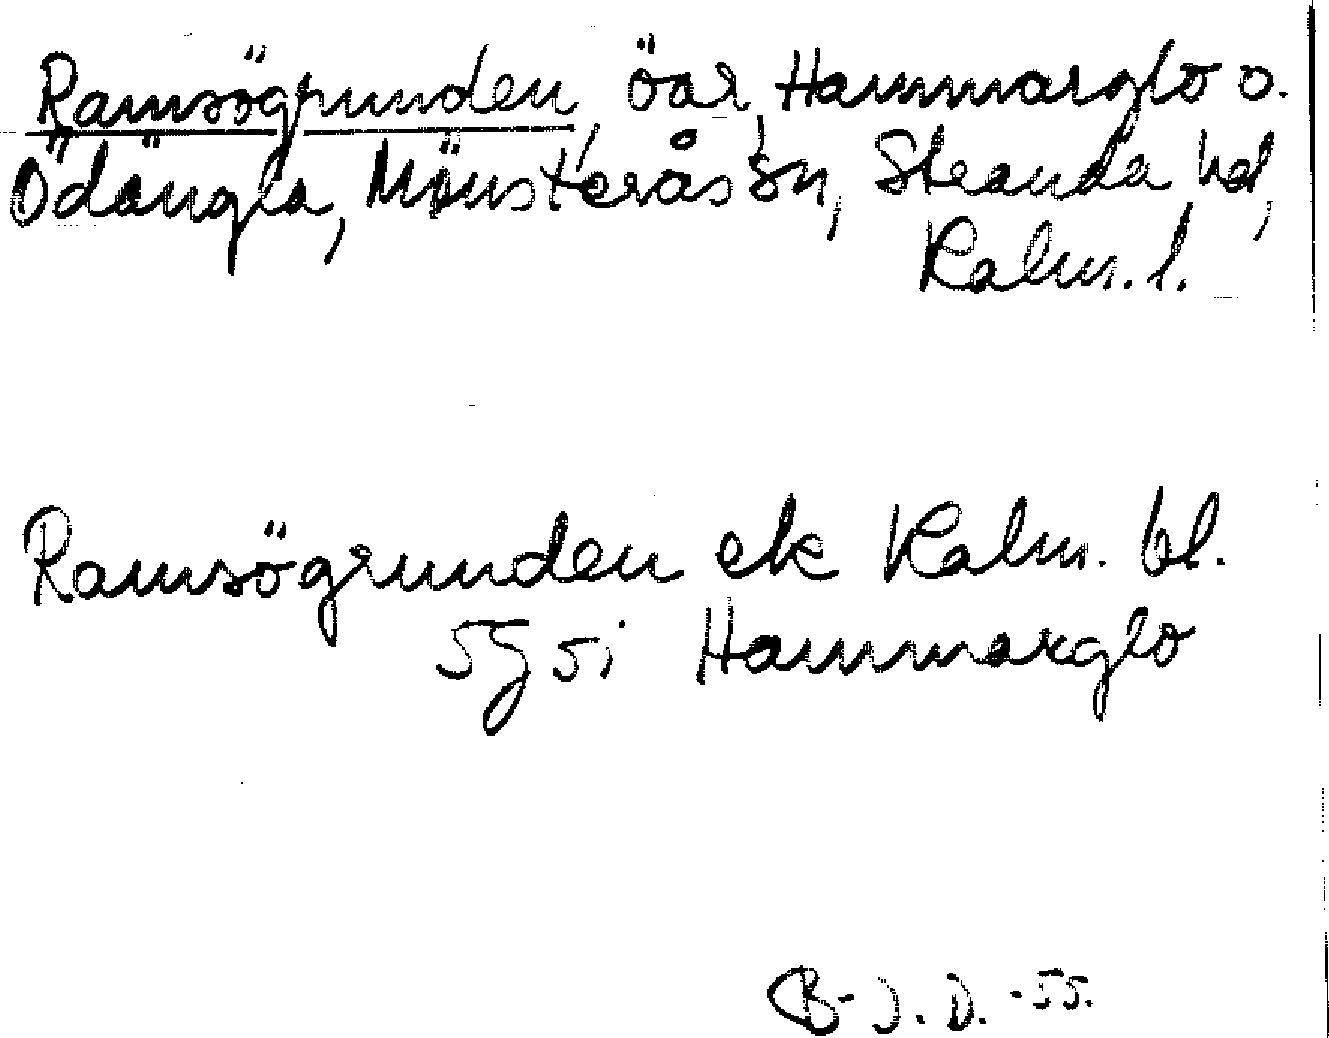 Ramsögrunden, öar, Hammarglo o.
Ödängla, Mönsterås sn, Stranda hd,
Kalm. l.
Ramsögrunden ek Kalm. bl.
5g 5i Hammarglo
B-J.D. -55.